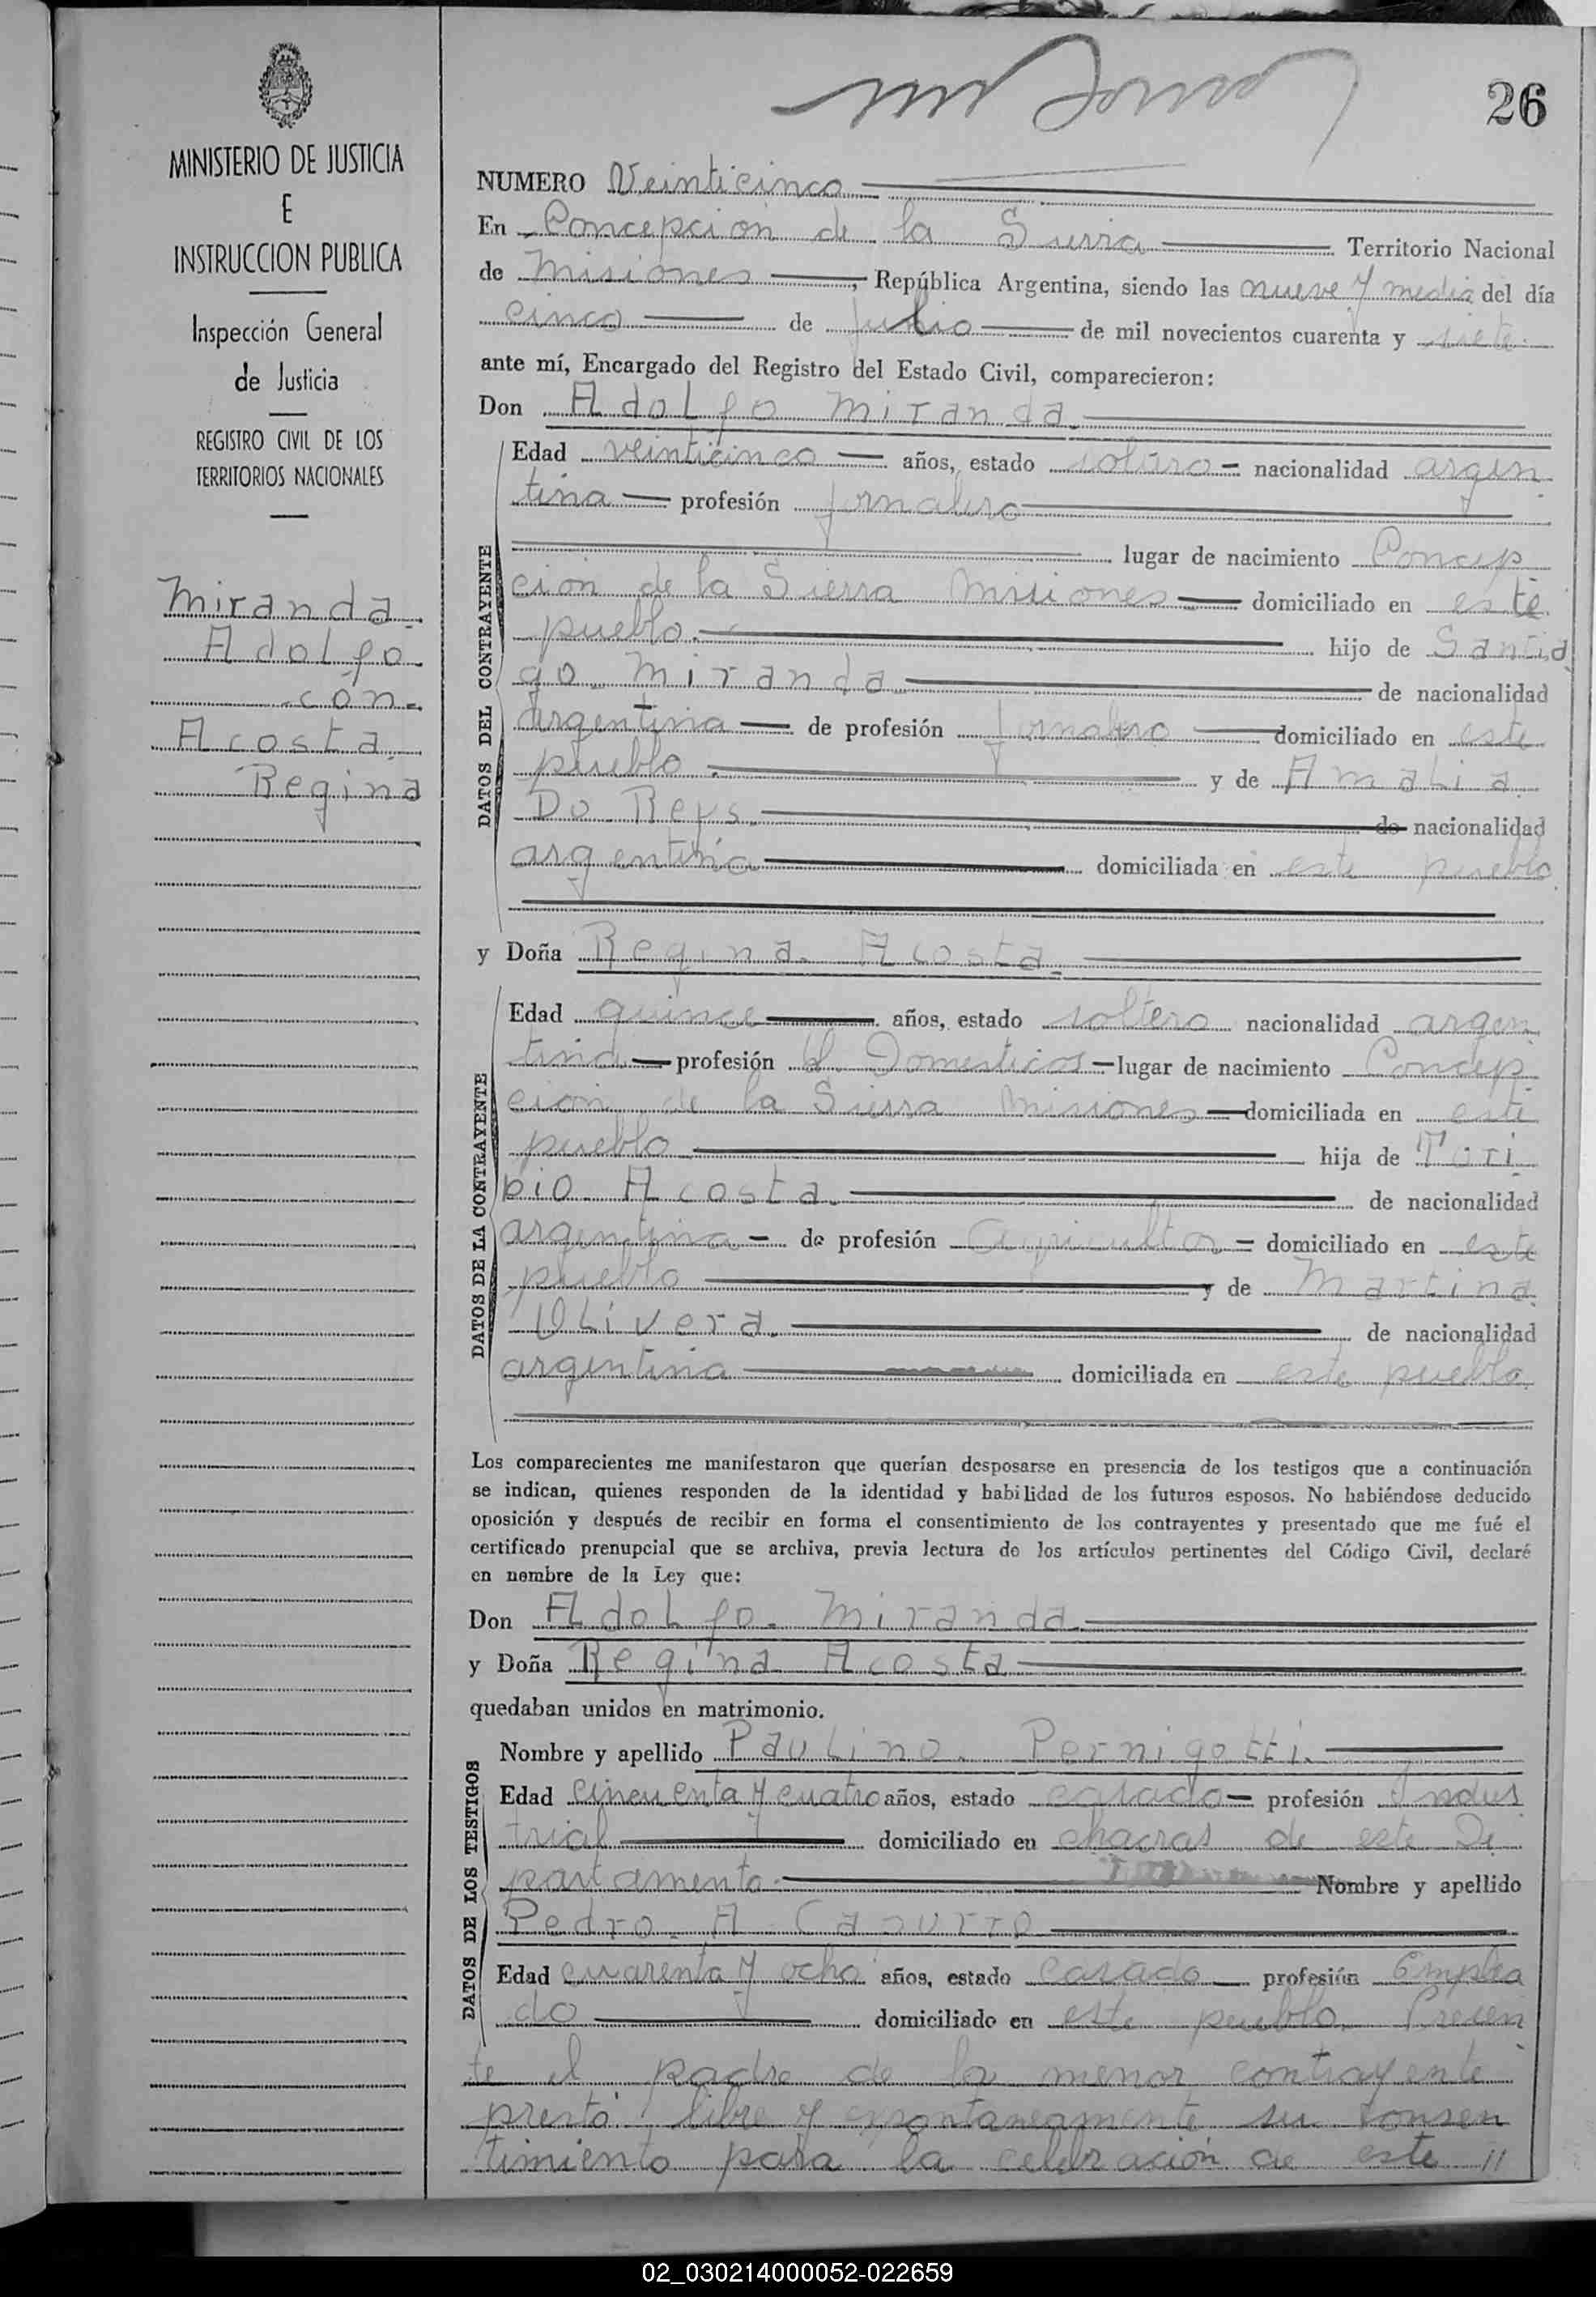 26
MINISTERIO DE JUSTICIA
E
INSTRUCCION PUBLICA
Inspección General
de Justicia
REGISTRO CIVIL DE LOS
TERRITORIOS NACIONALES
Miranda.
Adolfo.
con.
Acosta.
Regina
NUMERO Veinticinco
En Concepcion de la Sierra Territorio Nacional
de Misiones, República Argentina, siendo las nueve y media del día
cinco de julio de mil novecientos cuarenta y siete.
ante mí, Encargado del Registro del Estado Civil, comparecieron:
Don Adolfo Miranda.
DATOS DEL CONTRAYENTE
Edad veinticinco años, estado soltero nacionalidad argen
tina profesión jornalero
lugar de nacimiento Concep
cion de la Sierra Misiones domiciliado en este
pueblo. hijo de Santia
go Miranda de nacionalidad
argentina de profesión Jornalero domiciliado en este
pueblo. y de Amalia.
Do Reys. de nacionalidad
argentina domiciliada en este pueblo.
y Doña Regina. Acosta.
DATOS DE LA CONTRAYENTE
Edad quince años, estado soltero nacionalidad argen
tina profesión Q. Domesticos lugar de nacimiento Concep
cion de la Sierra Misiones domiciliada en este
pueblo hija de Tori
bio Acosta. de nacionalidad
argentina de profesión Agricultor domiciliado en este
pueblo y de Martina.
Olivera. de nacionalidad
argentina domiciliada en este pueblo.
Los comparecientes me manifestaron que querían desposarse en presencia de los testigos que a continuación
se indican, quienes responden de la identidad y habilidad de los futuros esposos. No habiéndose deducido
oposición y después de recibir en forma el consentimiento de los contrayentes y presentado que me fué el
certificado prenupcial que se archiva, previa lectura de los artículos pertinentes del Código Civil, declaré
en nombre de la Ley que:
Don Adolfo. Miranda.
y Doña Regina Acosta
quedaban unidos en matrimonio.
DATOS DE LOS TESTIGOS
Nombre y apellido Paulino. Pernigotti.
Edad cincuenta y cuatro años, estado casado profesión Indus
trial domiciliado en chacras de este De
partamento. Nombre y apellido
Pedro. A
Edad cuarenta y ocho años, estado casado profesión Emplea
do domiciliado en este pueblo. Presen
te el padre de la menor contrayente
presto libre y espontaneamente su consen
timiento para la celebracion de este //
02_030214000052-022659